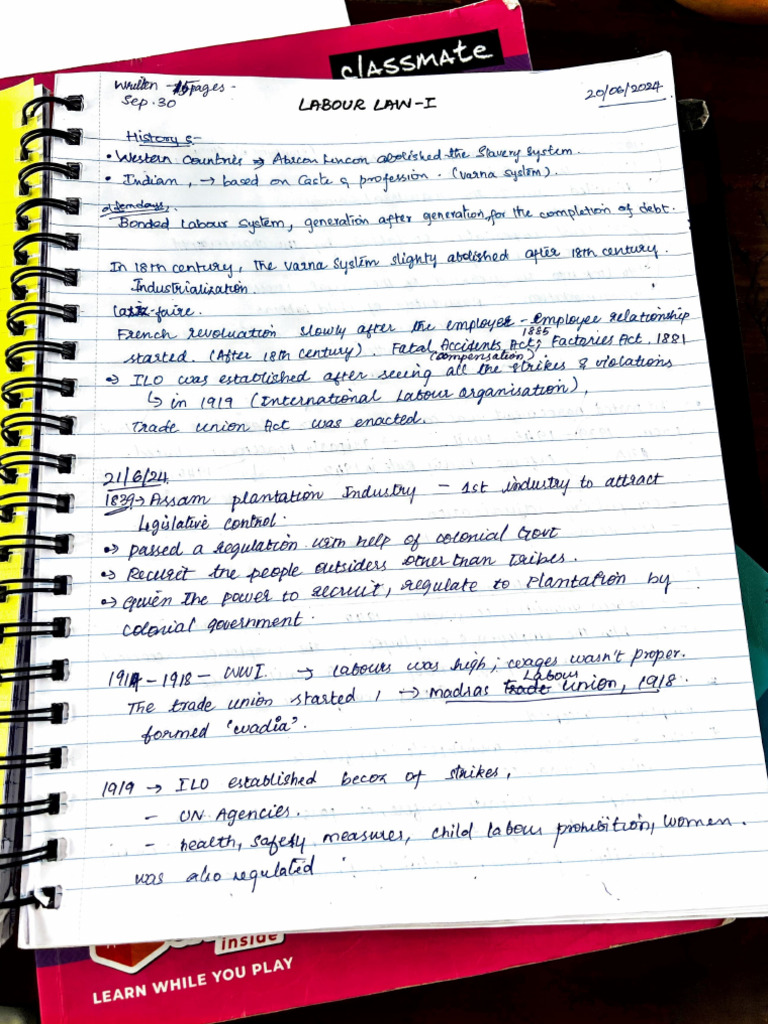 classmate
Written - 15 pages -
Sep. 30
LABOUR LAW-I
20/06/2024
History :-
• Western Countries → Abrcon Lincon abolished the Slavery System.
• Indian, → based on Caste & profession. (Varna System).
oldendays,
Bonded Labour System, generation after generation, for the completion of debt.
In 18th century, The Varna System slighty abolished after 18th century.
Industrialization.
faire.
French revoluation slowly after the employer - employee relationship
1885
started. (After 18th Century). Fatal Accidents Act; Factories Act. 1881
(compensation)
→ ILO was established after seeing all the strikes & violations
↳ in 1919 (International Labour Organisation),
Trade Union Act was enacted.
21/6/24
1839 → Assam plantation Industry - 1st industry to attract
legislative control.
→ passed a regulation with help of colonial Govt
→ Recurit the people outsiders other than Tribes.
→ Given the power to recruit, regulate to Plantation by
colonial government.
1914 - 1918 - WWI. → Labours was high; wages wasn't proper.
Labour
The trade union started, → madras trade union, 1918.
formed 'wadia'.
1919 → ILO established becoz of strikes,
- UN Agencies.
- health, safety measures, child labour prohibition, women.
was also regulated
inside
LEARN WHILE YOU PLAY